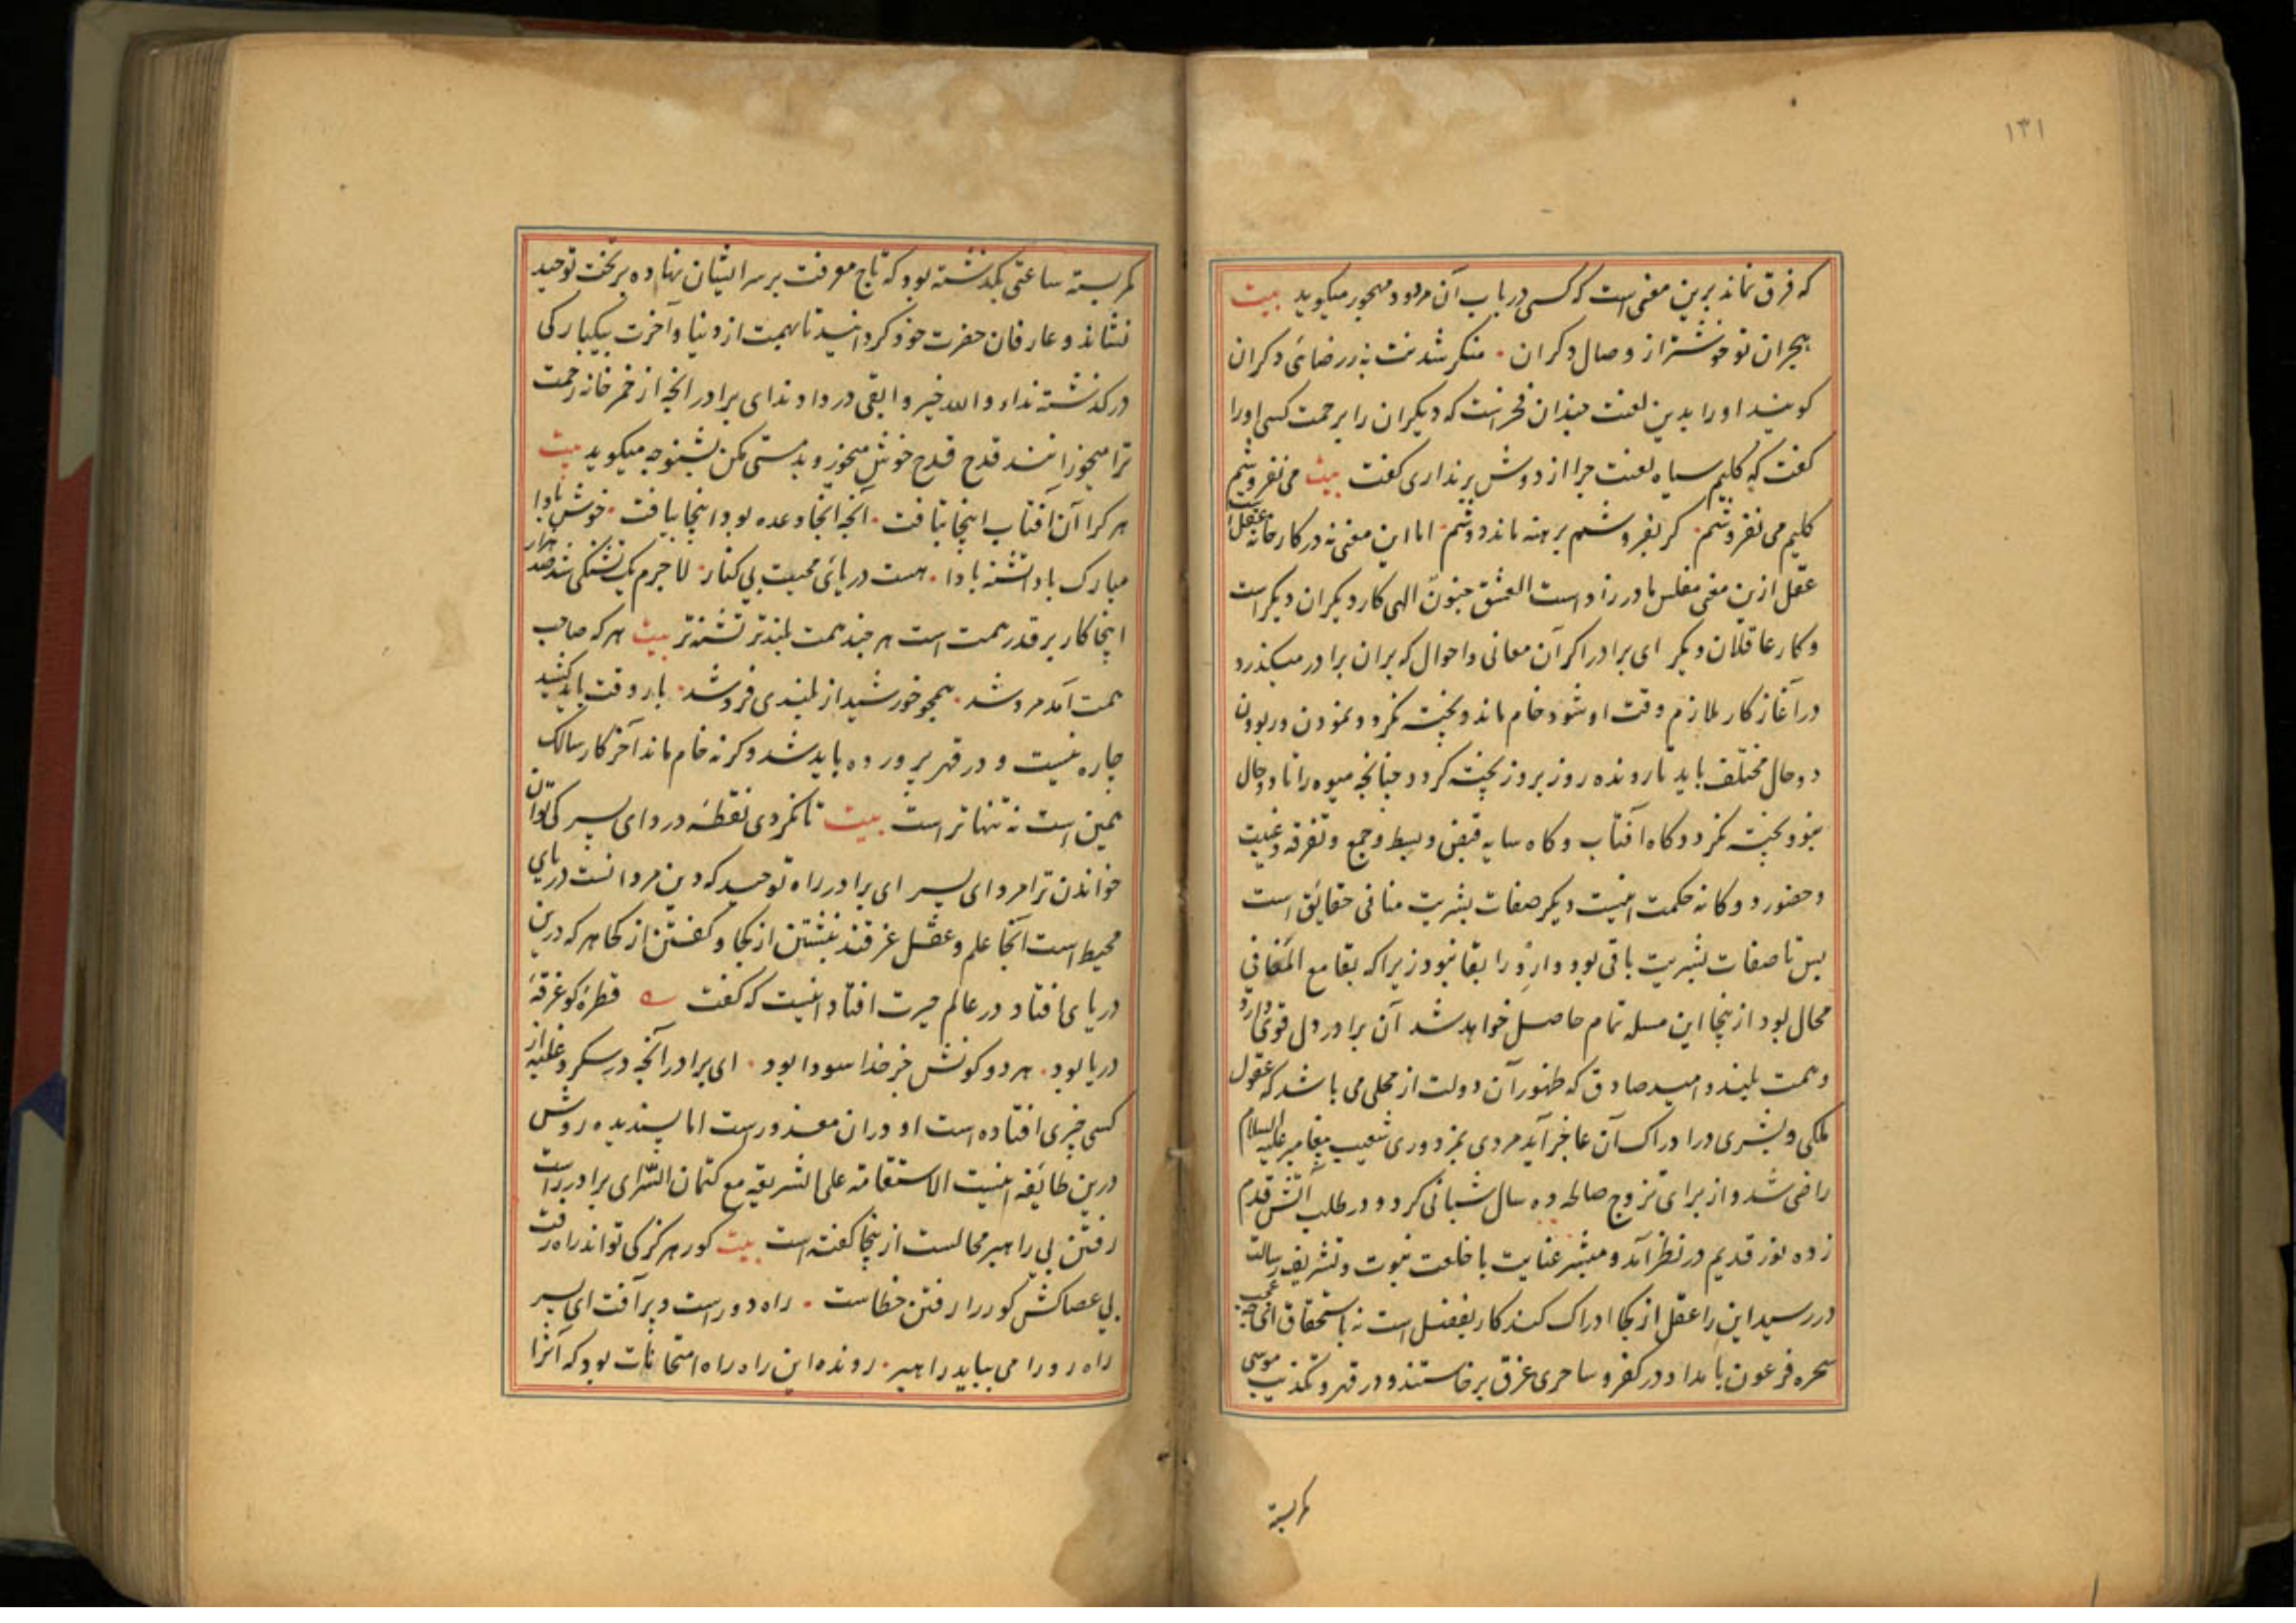 ۱۳۱
که فرق نماند برین معنی است که کسی در باب آن مردود مهجور میکوید بیت
هجران تو خوشتر از وصال دکران • منکر شدنت به ز رضائی دکران
کویند او را بدین لعنت چندان فخرست که دیکران را برحمت کسی او را
کفت که کلیم سیاه لعنت چرا از دوش برنداری کفت بیت می نفروشم
کلیم می نفروشم • کر بفروشم برهنه ماند دوشم • اما این معنی نه در کارخانه عقل است
عقل ازین معنی مفلس مادر زاد است العشق جنون الهی کار دیکران دیکر است
و کار عاقلان دیکر ای برادر اکر آن معانی و احوال که بران برادر میکذرد
در آغاز کار ملازم وقت او شود خام ماند و پخته نکردد نمودن و ربودن
دو حال مختلف باید تا رونده روز بروز پخته کردد چنانچه میوه را تا دو حال
نبود پخته نکردد کاه آفتاب و کاه سایه قبض و بسط و جمع و تفرقه و غیبت
و حضور دوکانه حکمت اینست دیکر صفات بشریت منافی حقایق است
پس تا صفات بشریت باقی بود وارد را بقا نبود زیرا که بقا مع المنافی
محال بود ازینجا این مسله تمام حاصل خواهد شد آن برادر دل قوی دارد
و همت بلند و امید صادق که ظهور آن دولت از محلی می باشد که عقول
ملکی و بشری در ادراک آن عاجز آید مردی بمزدوری شعیب پیغامبر علیه السلام
راضی شد و از برای تزوج صالحه ده سال شبانی کرد و در طلب آتش قدم
زده نور قدیم در نظر آمد و مبشر عنایت با خلعت نبوت و تشریف رسالت
در رسید این را عقل از کجا ادراک کند کار بفضل است نه باستحقاق
سحره فرعون بامداد در کفر و ساحری غرق برخاستند و در قهر و تکذیب موسی
کمر بسته
کمر بسته ساعتی نکذشته بود که تاج معرفت بر سر ایشان نهاده بر تخت توحید
نشاند و عارفان حضرت خود کردانید تا بهمت از دنیا و آخرت بیکبارکی
درکذشته نداء والله خیر و ابقی در دادند ای برادر آنچه از خمر خانه رحمت
ترا میخورانند قدح قدح خوش میخور و بدمستی مکن بشنو چه میکوید بیت
هر کرا آن آفتاب اینجا بتافت • آنچه آنجا وعده بود اینجا بیافت • خوش بادا
مبارک بادا تشنه بادا • هست دریائی محبت بی کنار • لا جرم یک تشنکی شد صد هزار
اینجا کار بر قدر همت است هر چند همت بلندتر تشنه تر بیت هر که صاحب
همت آمد مرد شد • همچو خورشید از بلندی فرد شد • بار وقت باید کشید
چاره نیست و در قهر پرورده باید شد و کرنه خام ماند آخر کار سالک
همین است نه تنها تر است بیت تا نکردی نقطه درد ای پسر کی توان
خواندن ترا مرد ای پسر ای برادر راه توحید که دین مردانست دریای
محیط است آنجا علم و عقل غرقند نبشتن از کجا و کفتن از کجا هر که درین
دریای افتاد در عالم حیرت افتاد اینست که کفت قطره کو غرقه
دریا بود • هر دو کونش جز خدا سودا بود • ای برادر آنچه در سکر و غلبه از
کسی چیزی افتاده است او دران معذورست اما پسندیده روش
درین طائفه اینست الاستقامة علی الشریعة مع کتمان السر ای برادر راست
رفتن بی راهبر محالست ازینجا کفته است بیت کور هرکز کی تواند راه رفت
بی عصاکش کور را رفتن خطاست • راه دورست و پر آفت ای پسر
راه رو را می بباید راهبر • رونده این راه راه امتحانات بود که آنرا